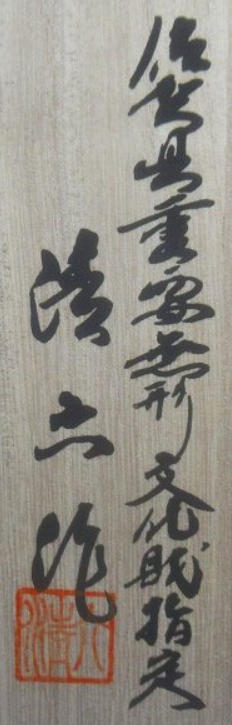 佐賀県重要無形文化財指定
清六作
清六